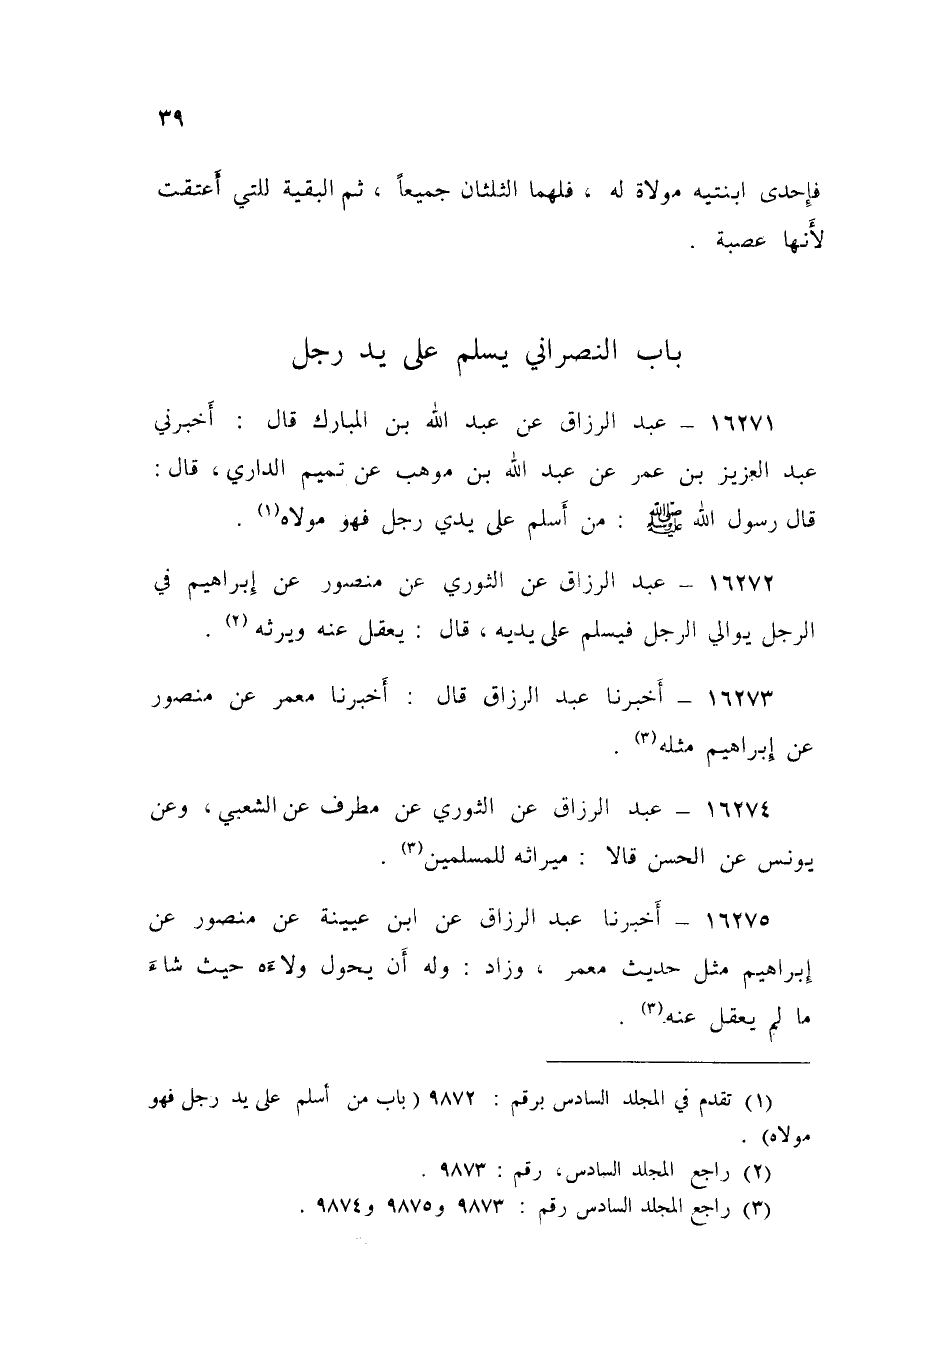 ٣٩
فإحدى ابنتيه مولاة له ، فلهما الثلثان جميعاً ، ثم البقية للتي أَعتقت
لأَنها عصبة .
باب النصراني يسلم على يد رجل
١٦٢٧١ – عبد الرزاق عن عبد الله بن المبارك قال : أَخبرني
عبد العزيز بن عمر عن عبد الله بن موهب عن تميم الداري ، قال :
قال رسول الله ﷺ : من أَسلم على يدي رجل فهو مولاه(١) .
١٦٢٧٢ – عبد الرزاق عن الثوري عن منصور عن إبراهيم في
الرجل يوالي الرجل فيسلم على يديه ، قال : يعقل عنه ويرثه (٢) .
١٦٢٧٣ – أَخبرنا عبد الرزاق قال : أَخبرنا معمر عن منصور
عن إبراهيم مثله(٣) .
١٦٢٧٤ – عبد الرزاق عن الثوري عن مطرف عن الشعبي ، وعن
يونس عن الحسن قالا : ميراثه للمسلمين(٣) .
١٦٢٧٥ – أَخبرنا عبد الرزاق عن ابن عيينة عن منصور عن
إبراهيم مثل حديث معمر ، وزاد : وله أَن يحول ولاءَه حيث شاءَ
ما لم يعقل عنه(٣) .
(١) تقدم في المجلد السادس برقم : ٩٨٧٢ ( باب من أسلم على يد رجل فهو
مولاه) .
(٢) راجع المجلد السادس، رقم : ٩٨٧٣ .
(٣) راجع المجلد السادس رقم : ٩٨٧٣ و٩٨٧٥ و٩٨٧٤ .